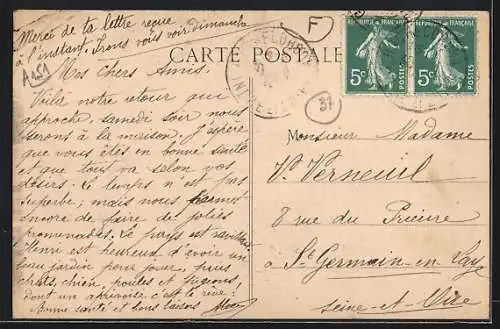 Merci de ta lettre reçue
à l'instant. Irons vous voir dimanche
A451
F
37
CARTE POSTALE
RÉPUBLIQUE FRANÇAISE
5c
POSTES
RÉPUBLIQUE FRANÇAISE
5c
POSTES
Mes Chers Amis.
Voilà notre retour qui
approche, samedi soir nous
serons à la maison. J'espère
que vous êtes en bonne santé
et que tout va selon vos
désirs. Le temps n'est pas
superbe; mais nous permet
encore de faire de jolies
promenades. Le pays est
Henri est heureux d'avoir un
beau jardin pour jouer, puis
chats, chien, poules et pigeons,
dont un apprivoisé c'est le rêve!
Bonne santé et bons baisers
Monsieur Madame
V. Verneuil
8 rue du Prieuré
à St Germain-en-Lay
Seine-et-Oise